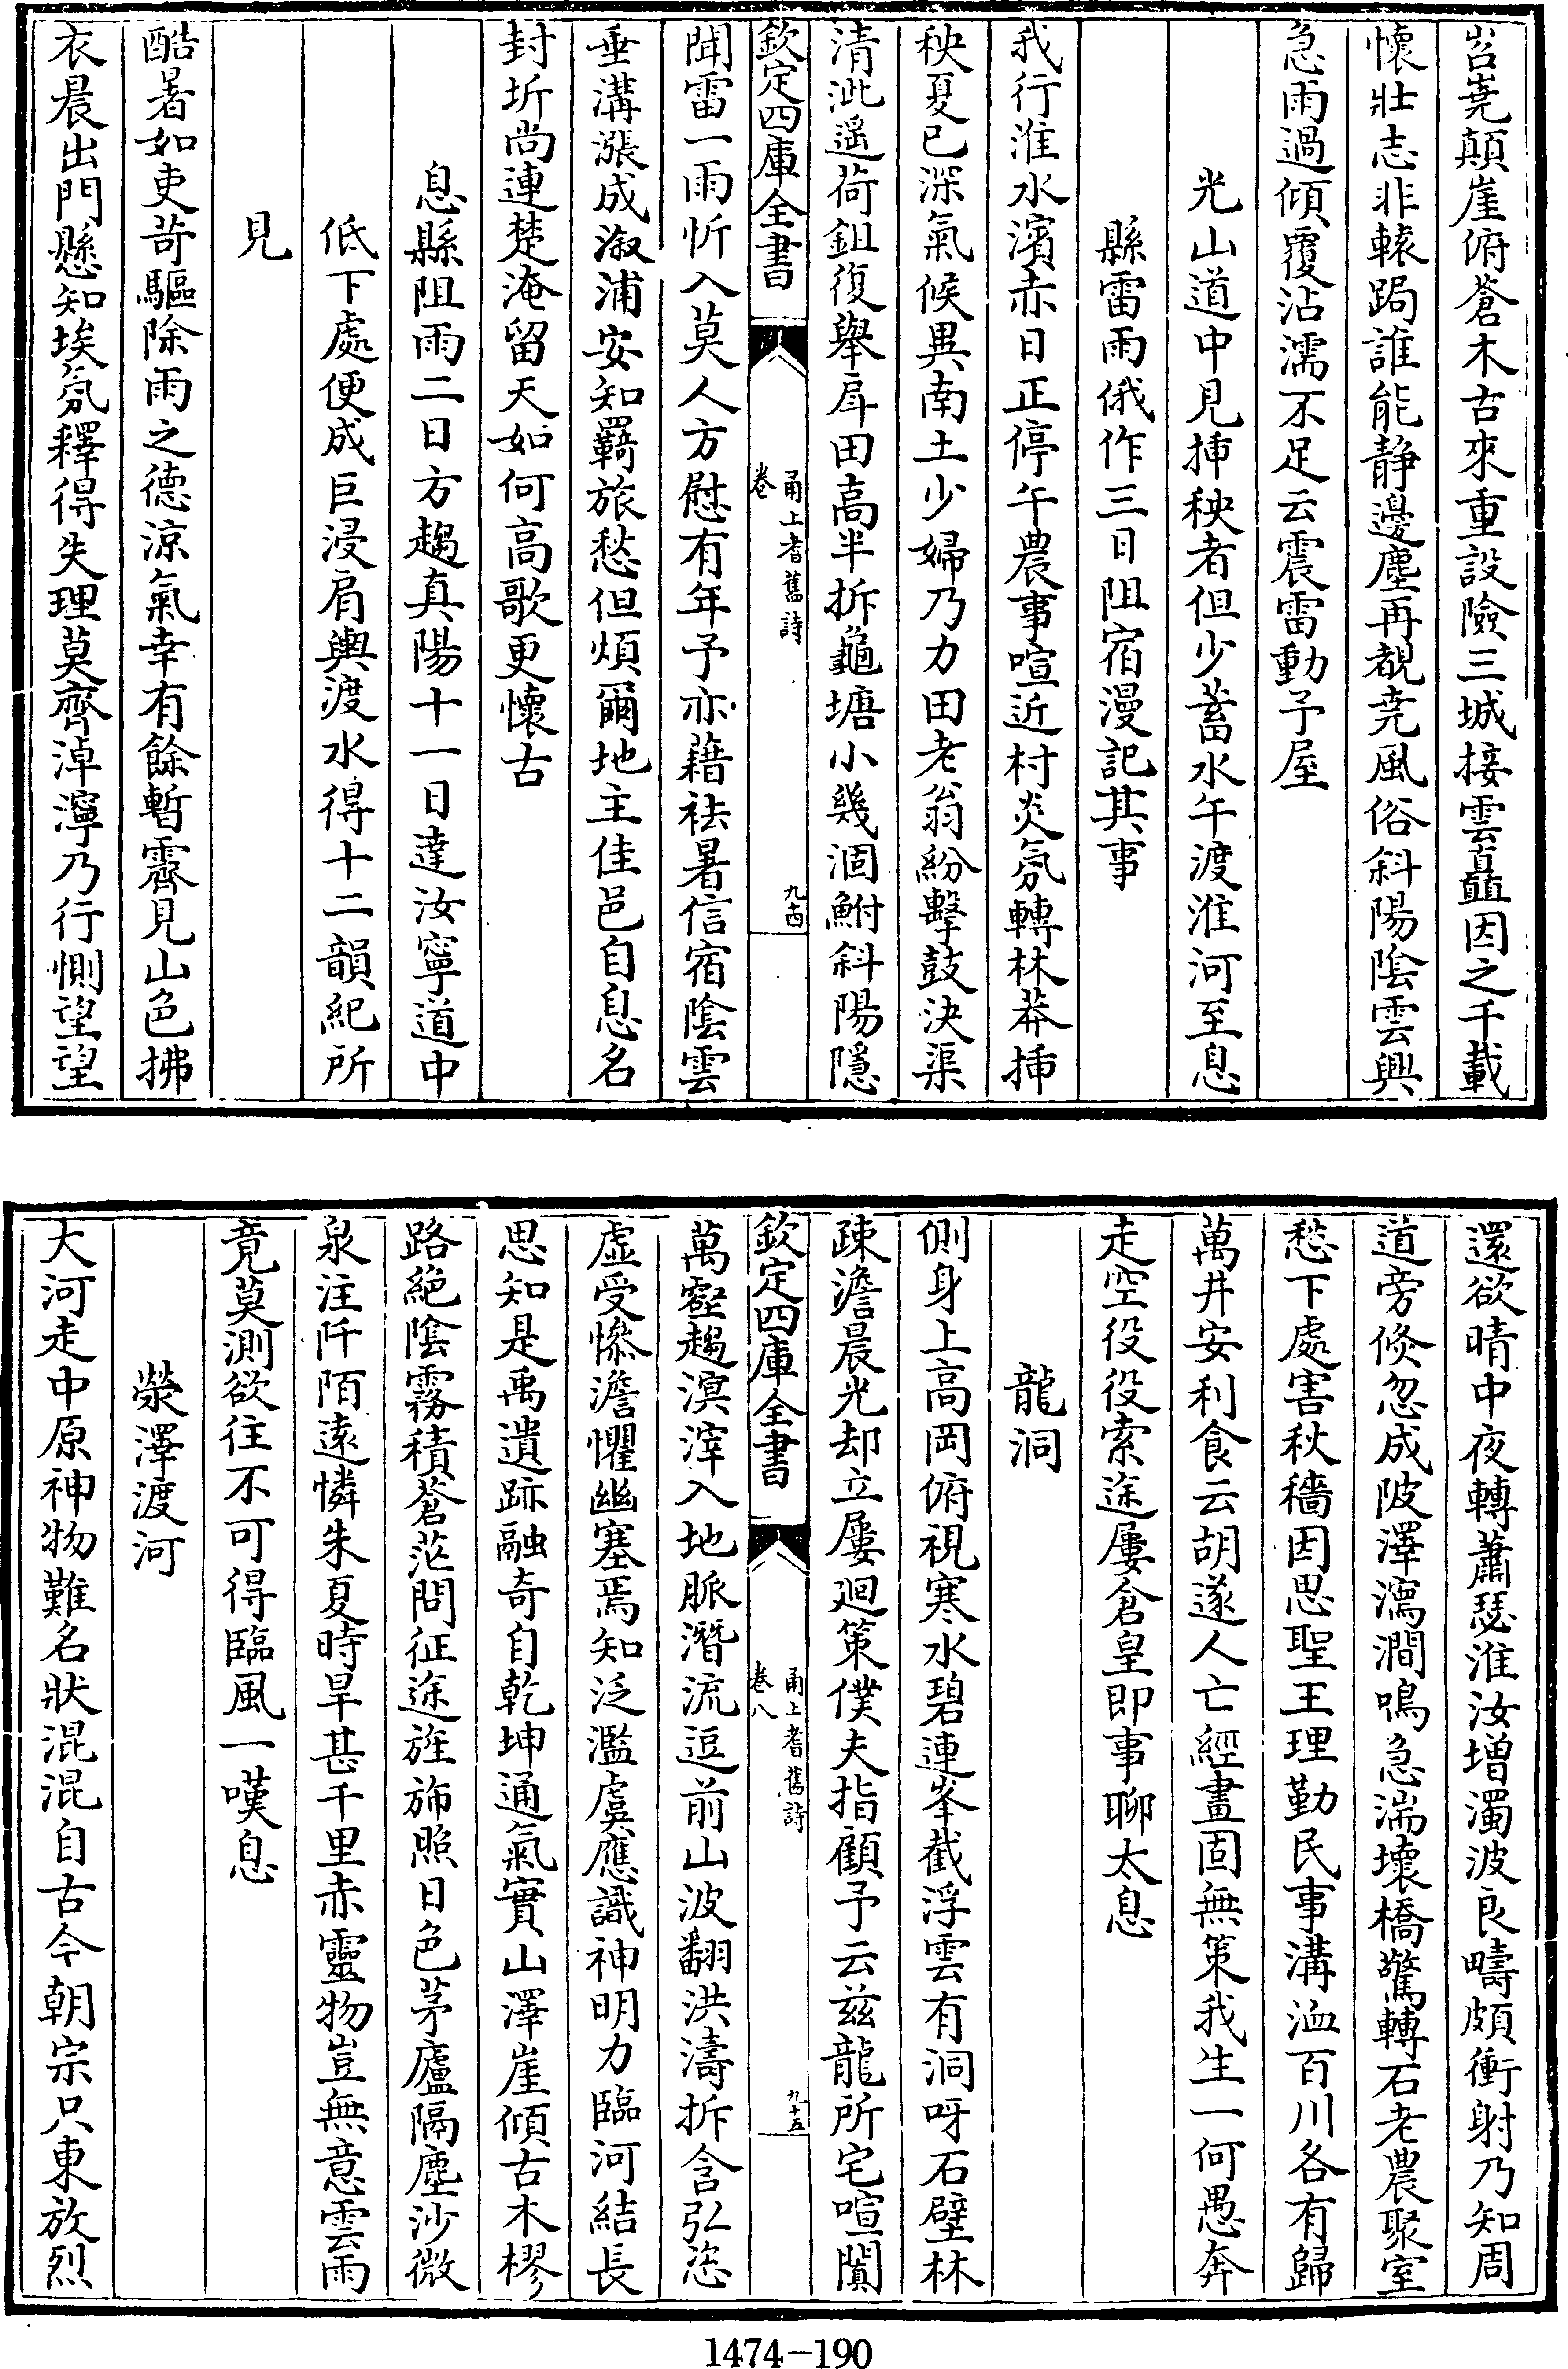 岧嶤顛崖俯蒼木古來重設險三城接雲矗因之千載
懷壯志非轅跼誰能靜邊塵再覩堯風俗斜陽陰雲興
急雨過傾覆沾濡不足云震雷動予屋
光山道中見揷秧者但少蓄水午渡淮河至息
縣雷雨俄作三日阻宿漫記其事
我行淮水濱赤日正停午農事喧近村炎氛轉林莽揷
秧夏已深氣候異南土少婦乃力田老翁紛擊鼓決渠
清泚遥荷鉏復舉戽田高半拆龜塘小幾涸鮒斜陽隱
欽定四庫全書
甬上耆舊詩
卷
九十四
聞雷一雨忻入莫人方慰有年予亦藉祛暑信宿陰雲
垂溝漲成溆浦安知羇旅愁但煩爾地主佳邑自息名
封圻尚連楚淹留天如何高歌更懷古
息縣阻雨二日方趨真陽十一日達汝寧道中
低下處便成巨浸肩輿渡水得十二韻紀所
見
酷暑如吏苛驅除雨之德涼氣幸有餘暫霽見山色拂
衣晨出門懸知埃氛釋得失理莫齊淖濘乃行惻望望
還欲晴中夜轉蕭瑟淮汝增濁波良疇頗衝射乃知周
道旁倐忽成陂澤瀉澗鳴急湍壞橋驚轉石老農聚室
愁下處害秋穡因思聖王理勤民事溝洫百川各有歸
萬井安利食云胡遂人亡經畫固無策我生一何愚奔
走空役役索途屢倉皇即事聊太息
龍洞
側身上高岡俯視寒水碧連峯截浮雲有洞呀石壁林
疎澹晨光却立屢廻策僕夫指顧予云兹龍所宅喧闐
欽定四庫全書
甬上耆舊詩
卷八
九十五
萬壑趨溟滓入地脈潛流逗前山波翻洪濤拆含弘恣
虛受慘澹懼幽塞焉知泛濫虞應識神明力臨河結長
思知是禹遺跡融竒自乾坤通氣實山澤崖傾古木樛
路絶陰霧積蒼茫問征途旌斾照日色茅廬隔塵沙微
泉注阡陌遠憐朱夏時旱甚千里赤靈物豈無意雲雨
竟莫測欲往不可得臨風一嘆息
滎澤渡河
大河走中原神物難名狀混混自古今朝宗只東放烈
1474-190